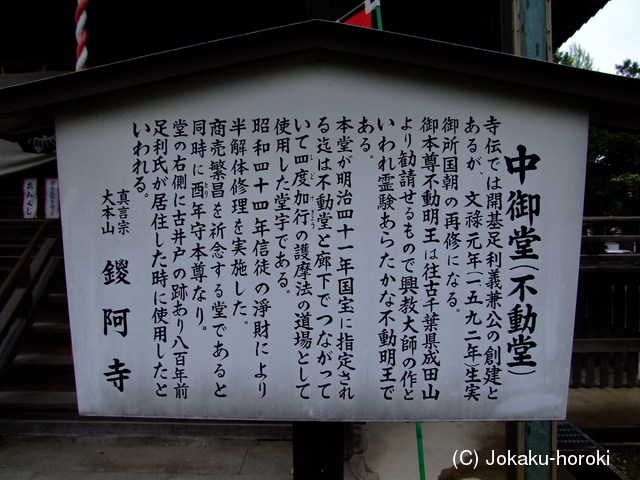 中御堂(不動堂)
寺伝では開基足利義兼公の創建と
あるが、文禄元年(一五九二年)生実
御所国朝の再修になる。
御本尊不動明王は往古千葉県成田山
より勧請せるもので興教大師の作と
いわれ霊験あらたかな不動明王で
ある。
本堂が明治四十一年国宝に指定され
る迄は不動堂と廊下でつながって
いて四度加行の護摩法の道場として
しどけぎょう
使用した堂宇である。
昭和四十四年信徒の浄財により
半解体修理を実施した。
商売繁昌を祈念する堂であると
同時に酉年守本尊なり。
とり
堂の右側に古井戸の跡あり八百年前
足利氏が居住した時に使用したと
いわれる。
真言宗
大本山
鑁阿寺
おみくじ
(C) Jokaku-horoki